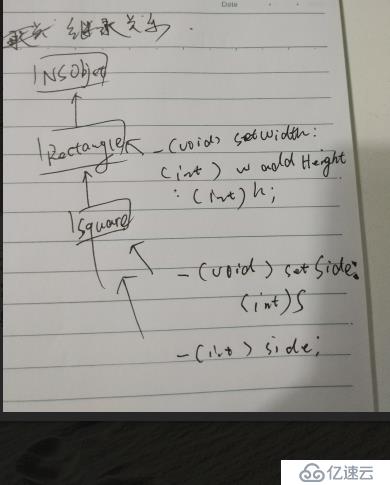 Date
继承关系.
NSObjet
Rectangle
-(void) setwidth:
(int) w add Height
: (int) h;
Square
-(void) set Side:
(int) S
-(int) side;
亿速云